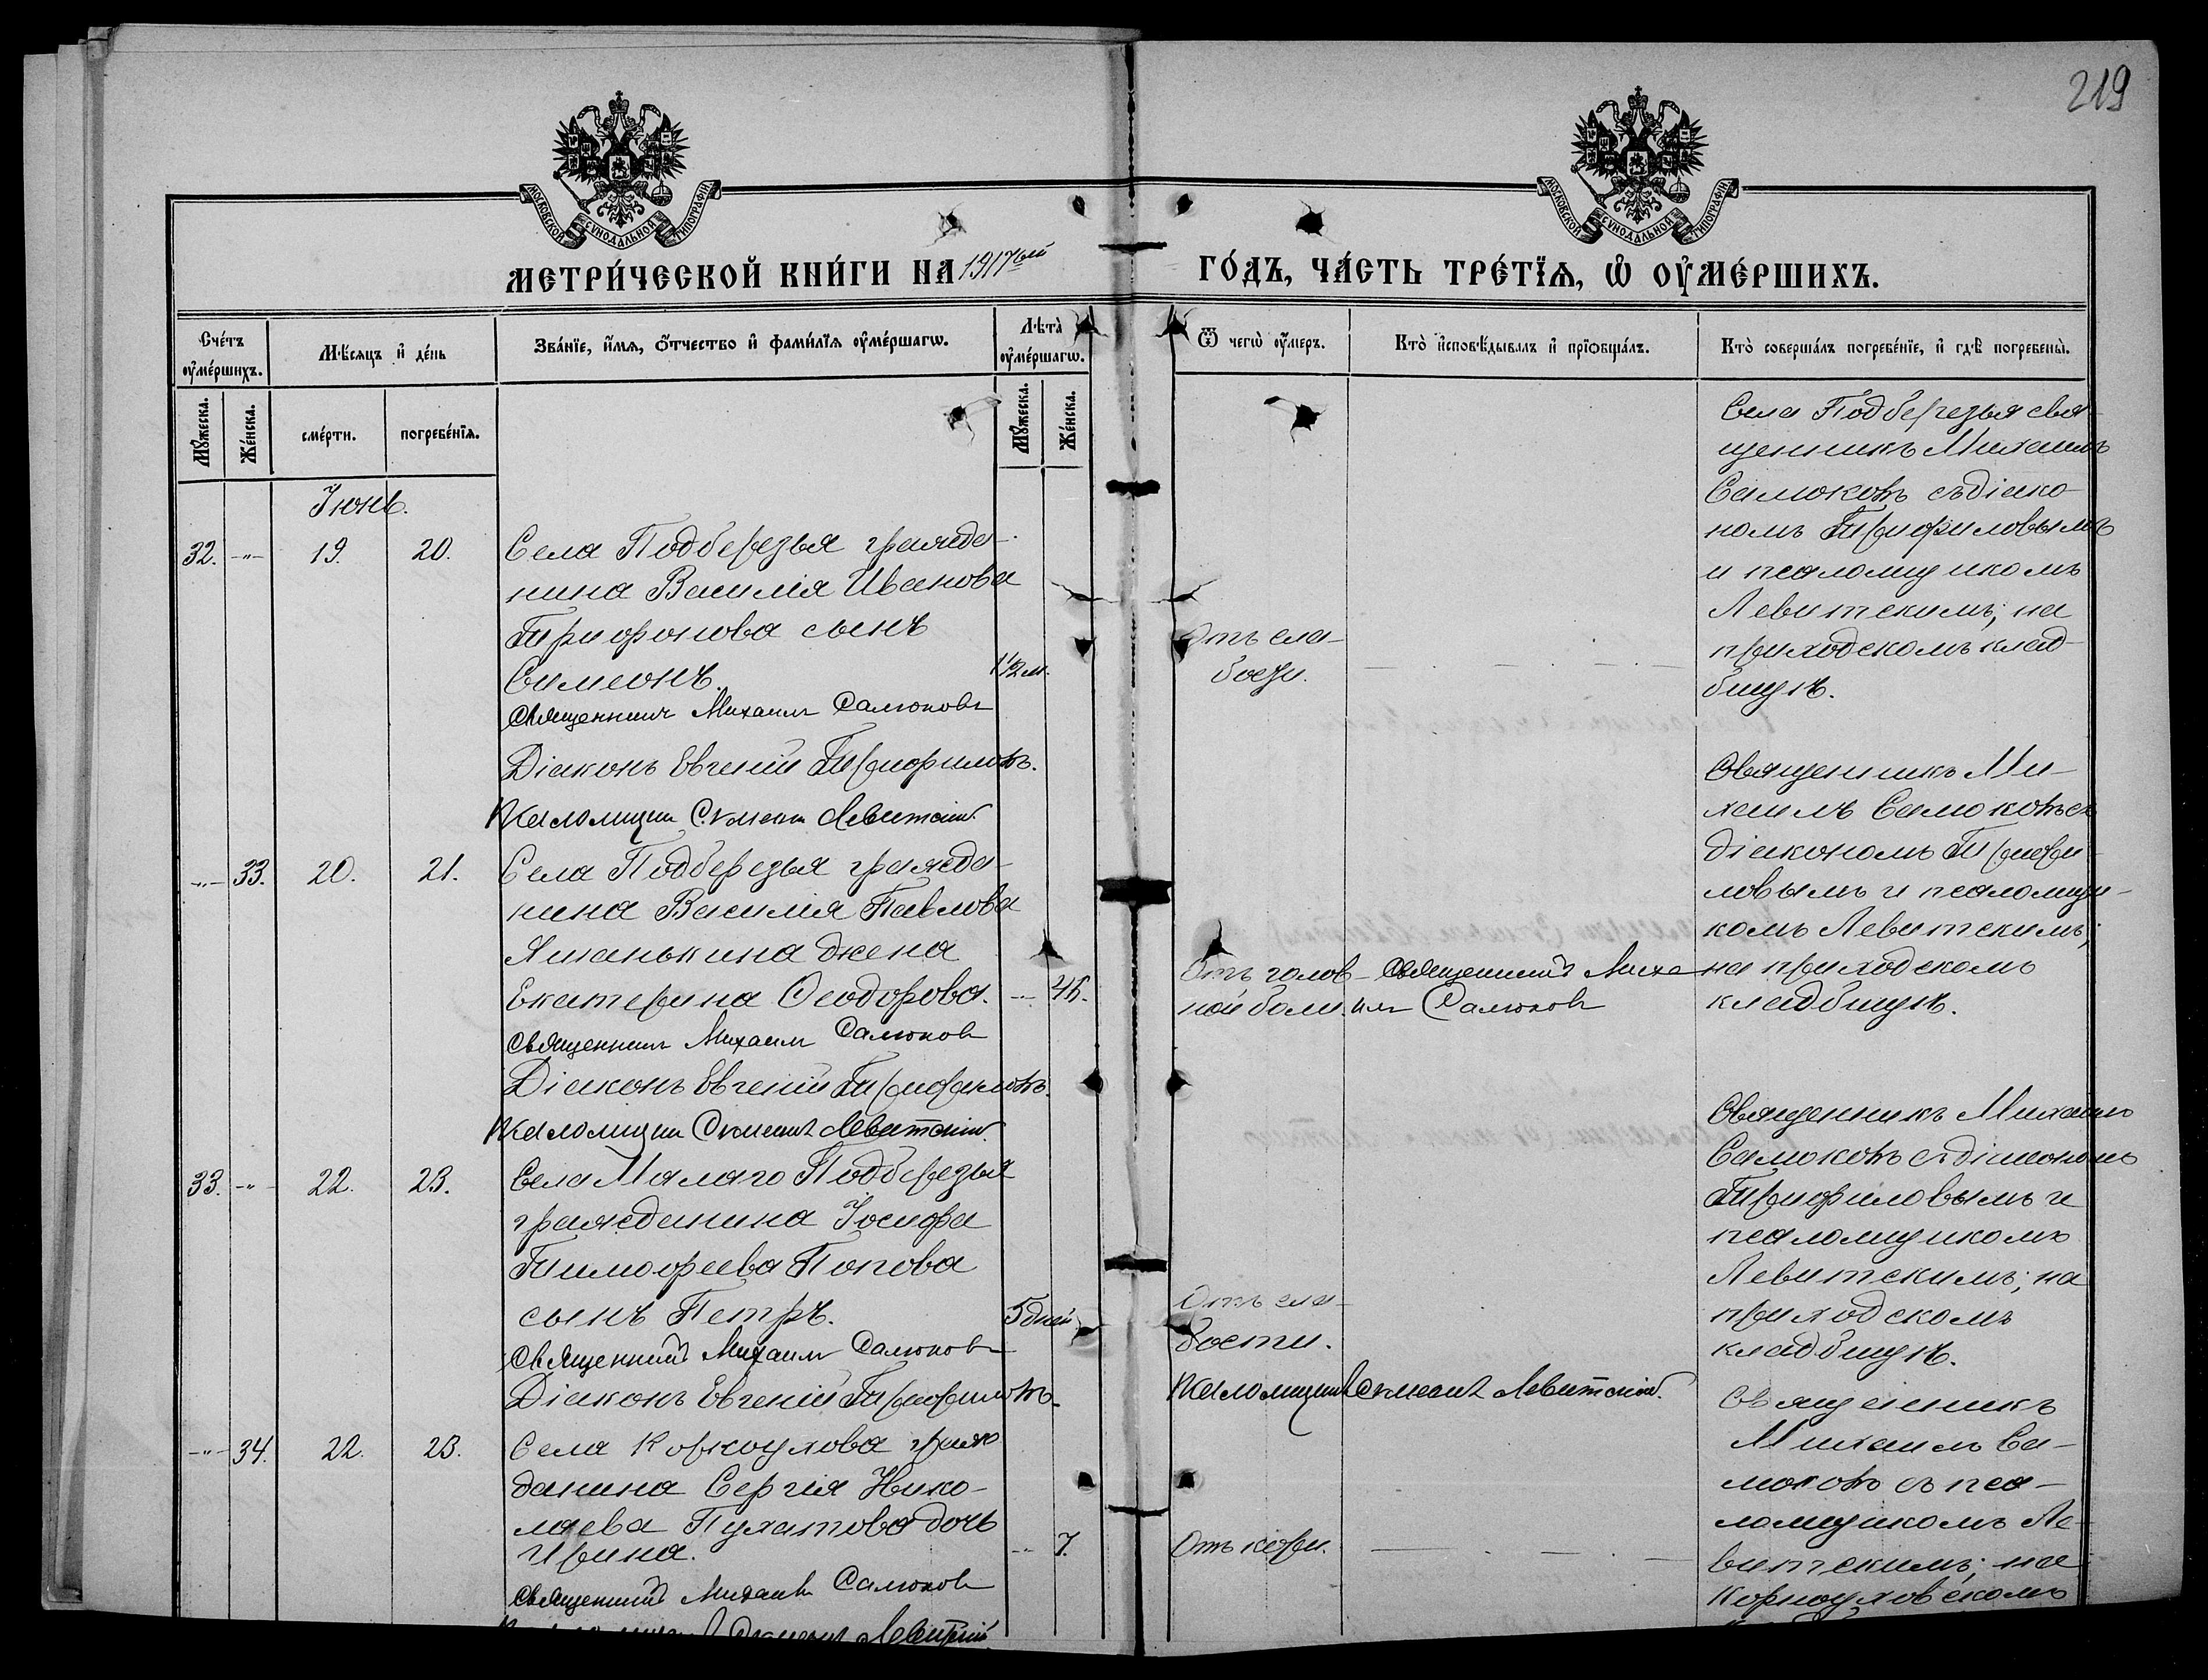 219
МОСКОВСКОЙ СѴНОДАЛЬНОЙ ТИПОГРАФІИ
МОСКОВСКОЙ СѴНОДАЛЬНОЙ ТИПОГРАФІИ
МЕТРИ́ЧЕСКОЙ КНИ́ГИ НА 1917ый
ГО́ДЪ, ЧА́СТЬ ТРЕ́ТЇѦ, Ѡ҆ ОУ҆МЕ́РШИХЪ.
Сче́тъ оу҆ме́ршихъ.
Мѣ́сѧцъ и҆ де́нь
Зва́нїе, и҆́мѧ, ѻ҆́тчество и҆ фами́лїѧ оу҆ме́ршагѡ.
Лѣта̀ оу҆ме́ршагѡ.
Ѿ чегѡ̀ оу҆́меръ.
Кто̀ и҆сповѣ́дывалъ и҆ прїѡбща́лъ.
Кто̀ соверша́лъ погребе́нїе, и҆ гдѣ̀ погребены̀.
Мꙋ́жеска.
Же́нска.
сме́рти.
погребе́нїѧ.
Мꙋ́жеска.
Же́нска.
Іюнь.
32. -"- 19. 20.
Села Подберезья гражда-
нина Василія Иванова
Трифонова сынъ
Симеонъ. 1½ м.
Священникъ Михаилъ Самоковъ
Діаконъ Евгеній Трифиловъ.
Псаломщикъ Левитскій.
Отъ сла-
бости.
Села Подберезья свя-
щенникъ Михаилъ
Самоковъ съ діако-
номъ Трифиловымъ
и псаломщикомъ
Левитскимъ; на
приходскомъ клад-
бищѣ.
-"- 33. 20. 21.
Села Подберезья гражда-
нина Василія Павлова
Яманькина жена
Екатерина Ѳеодорова. -"- 45.
Священникъ Михаилъ Самоковъ
Діаконъ Евгеній Трифиловъ.
Псаломщикъ Левитскій.
Отъ голов-
ной боли.
Священникъ Миха
илъ Самоковъ
Священникъ Ми-
хаилъ Самоковъ съ
діакономъ Трифи-
ловымъ и псаломщи-
комъ Левитскимъ;
на приходскомъ
кладбищѣ.
33. -"- 22. 23.
Села Малаго Подберезья
гражданина Іосифа
Тимофеева Попова
сынъ Петръ. 5 дней
Священникъ Михаилъ Самоковъ
Діаконъ Евгеній Трифиловъ.
Отъ сла-
бости.
Псаломщикъ Левитскій.
Священникъ Михаилъ
Самоковъ съ діакономъ
Трифиловымъ и
псаломщикомъ
Левитскимъ; на
приходскомъ
кладбищѣ.
-"- 34. 22. 23.
Села Корноухова граж
данина Сергія Нико-
лаева Пухатова дочь
Ирина. -"- 7.
Священникъ Михаилъ Самоковъ
Левитскій.
Отъ кори.
Священникъ
Михаилъ Са-
моковъ съ пса-
ломщикомъ Ле-
витскимъ; на
Корноуховскомъ